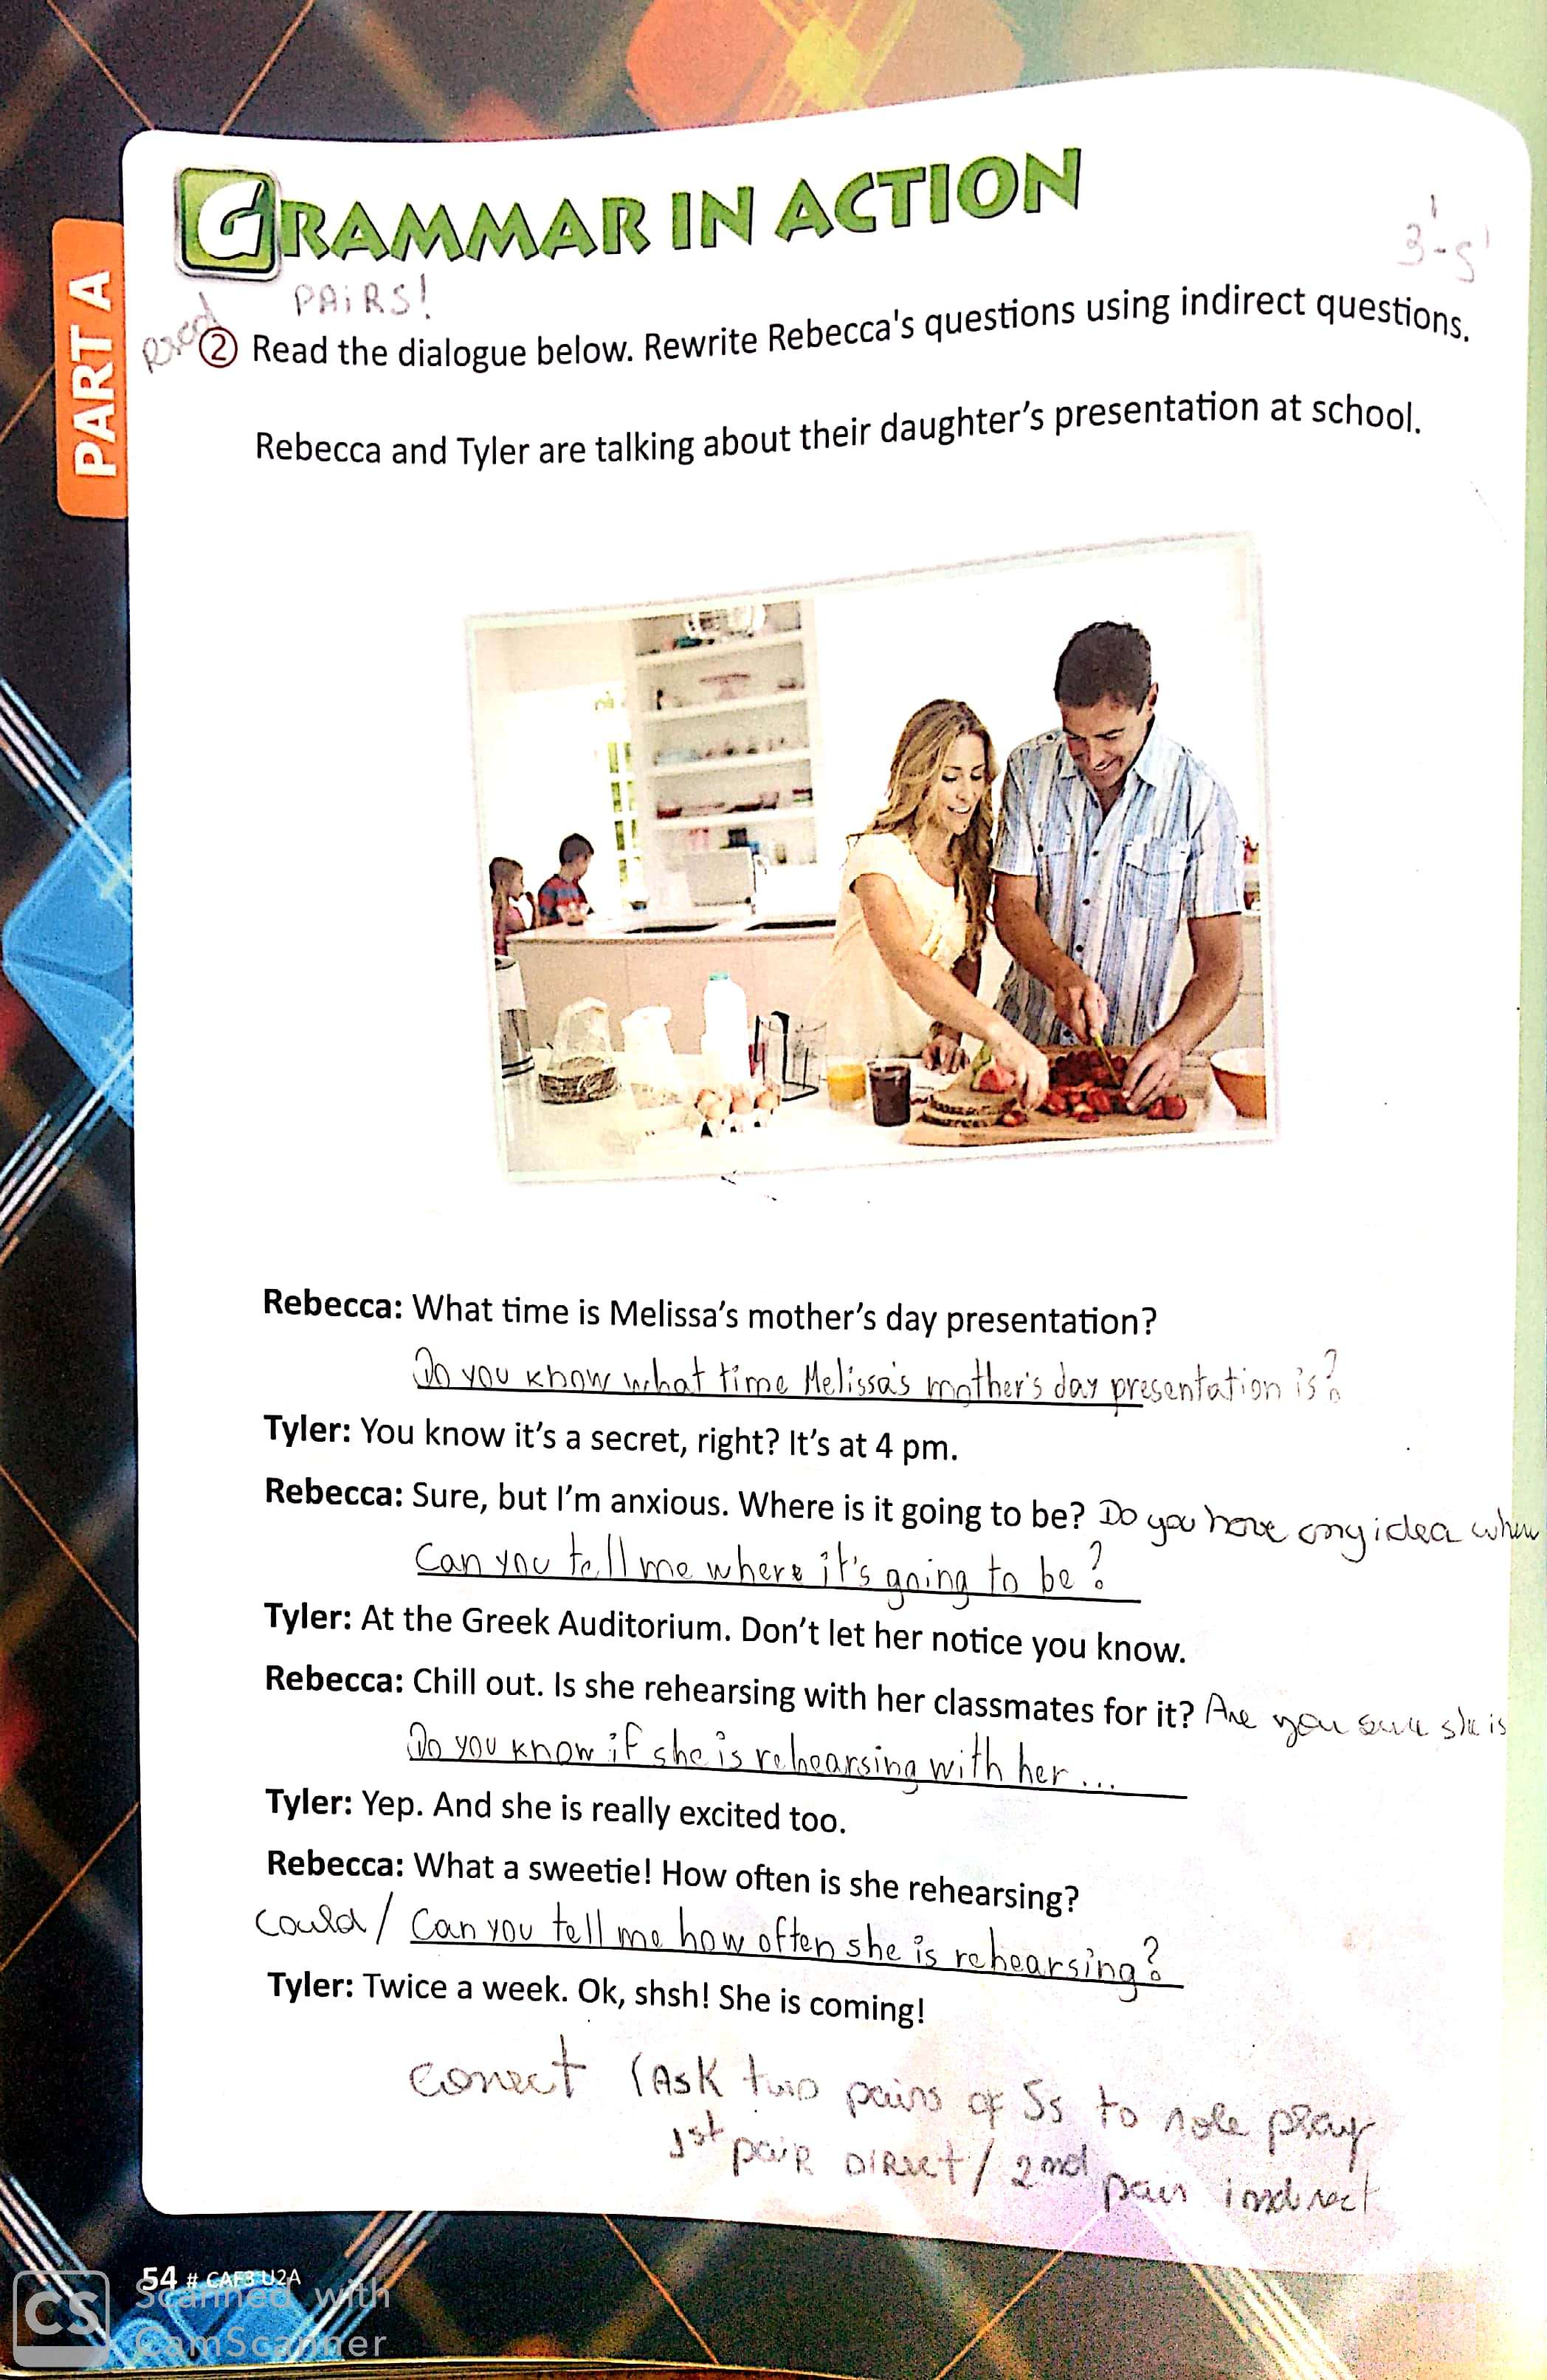 PART A
GRAMMAR IN ACTION
3'-5'
PAIRS!
Read
2 Read the dialogue below. Rewrite Rebecca's questions using indirect questions.
Rebecca and Tyler are talking about their daughter's presentation at school.
Rebecca: What time is Melissa's mother's day presentation?
Do you know what time Melissa's mother's day presentation is?
Tyler: You know it's a secret, right? It's at 4 pm.
Rebecca: Sure, but I'm anxious. Where is it going to be? Do you have any idea
Can you tell me where it's going to be?
Tyler: At the Greek Auditorium. Don't let her notice you know.
Rebecca: Chill out. Is she rehearsing with her classmates for it? Are you sure she is
Do you know if she is rehearsing with her ...
Tyler: Yep. And she is really excited too.
Rebecca: What a sweetie! How often is she rehearsing?
Could / Can you tell me how often she is rehearsing?
Tyler: Twice a week. Ok, shsh! She is coming!
correct (Ask two pairs of Ss to role play
1st pair DIRect / 2nd pair indirect
54 # CAF3 U2A
CS Scanned with
CamScanner